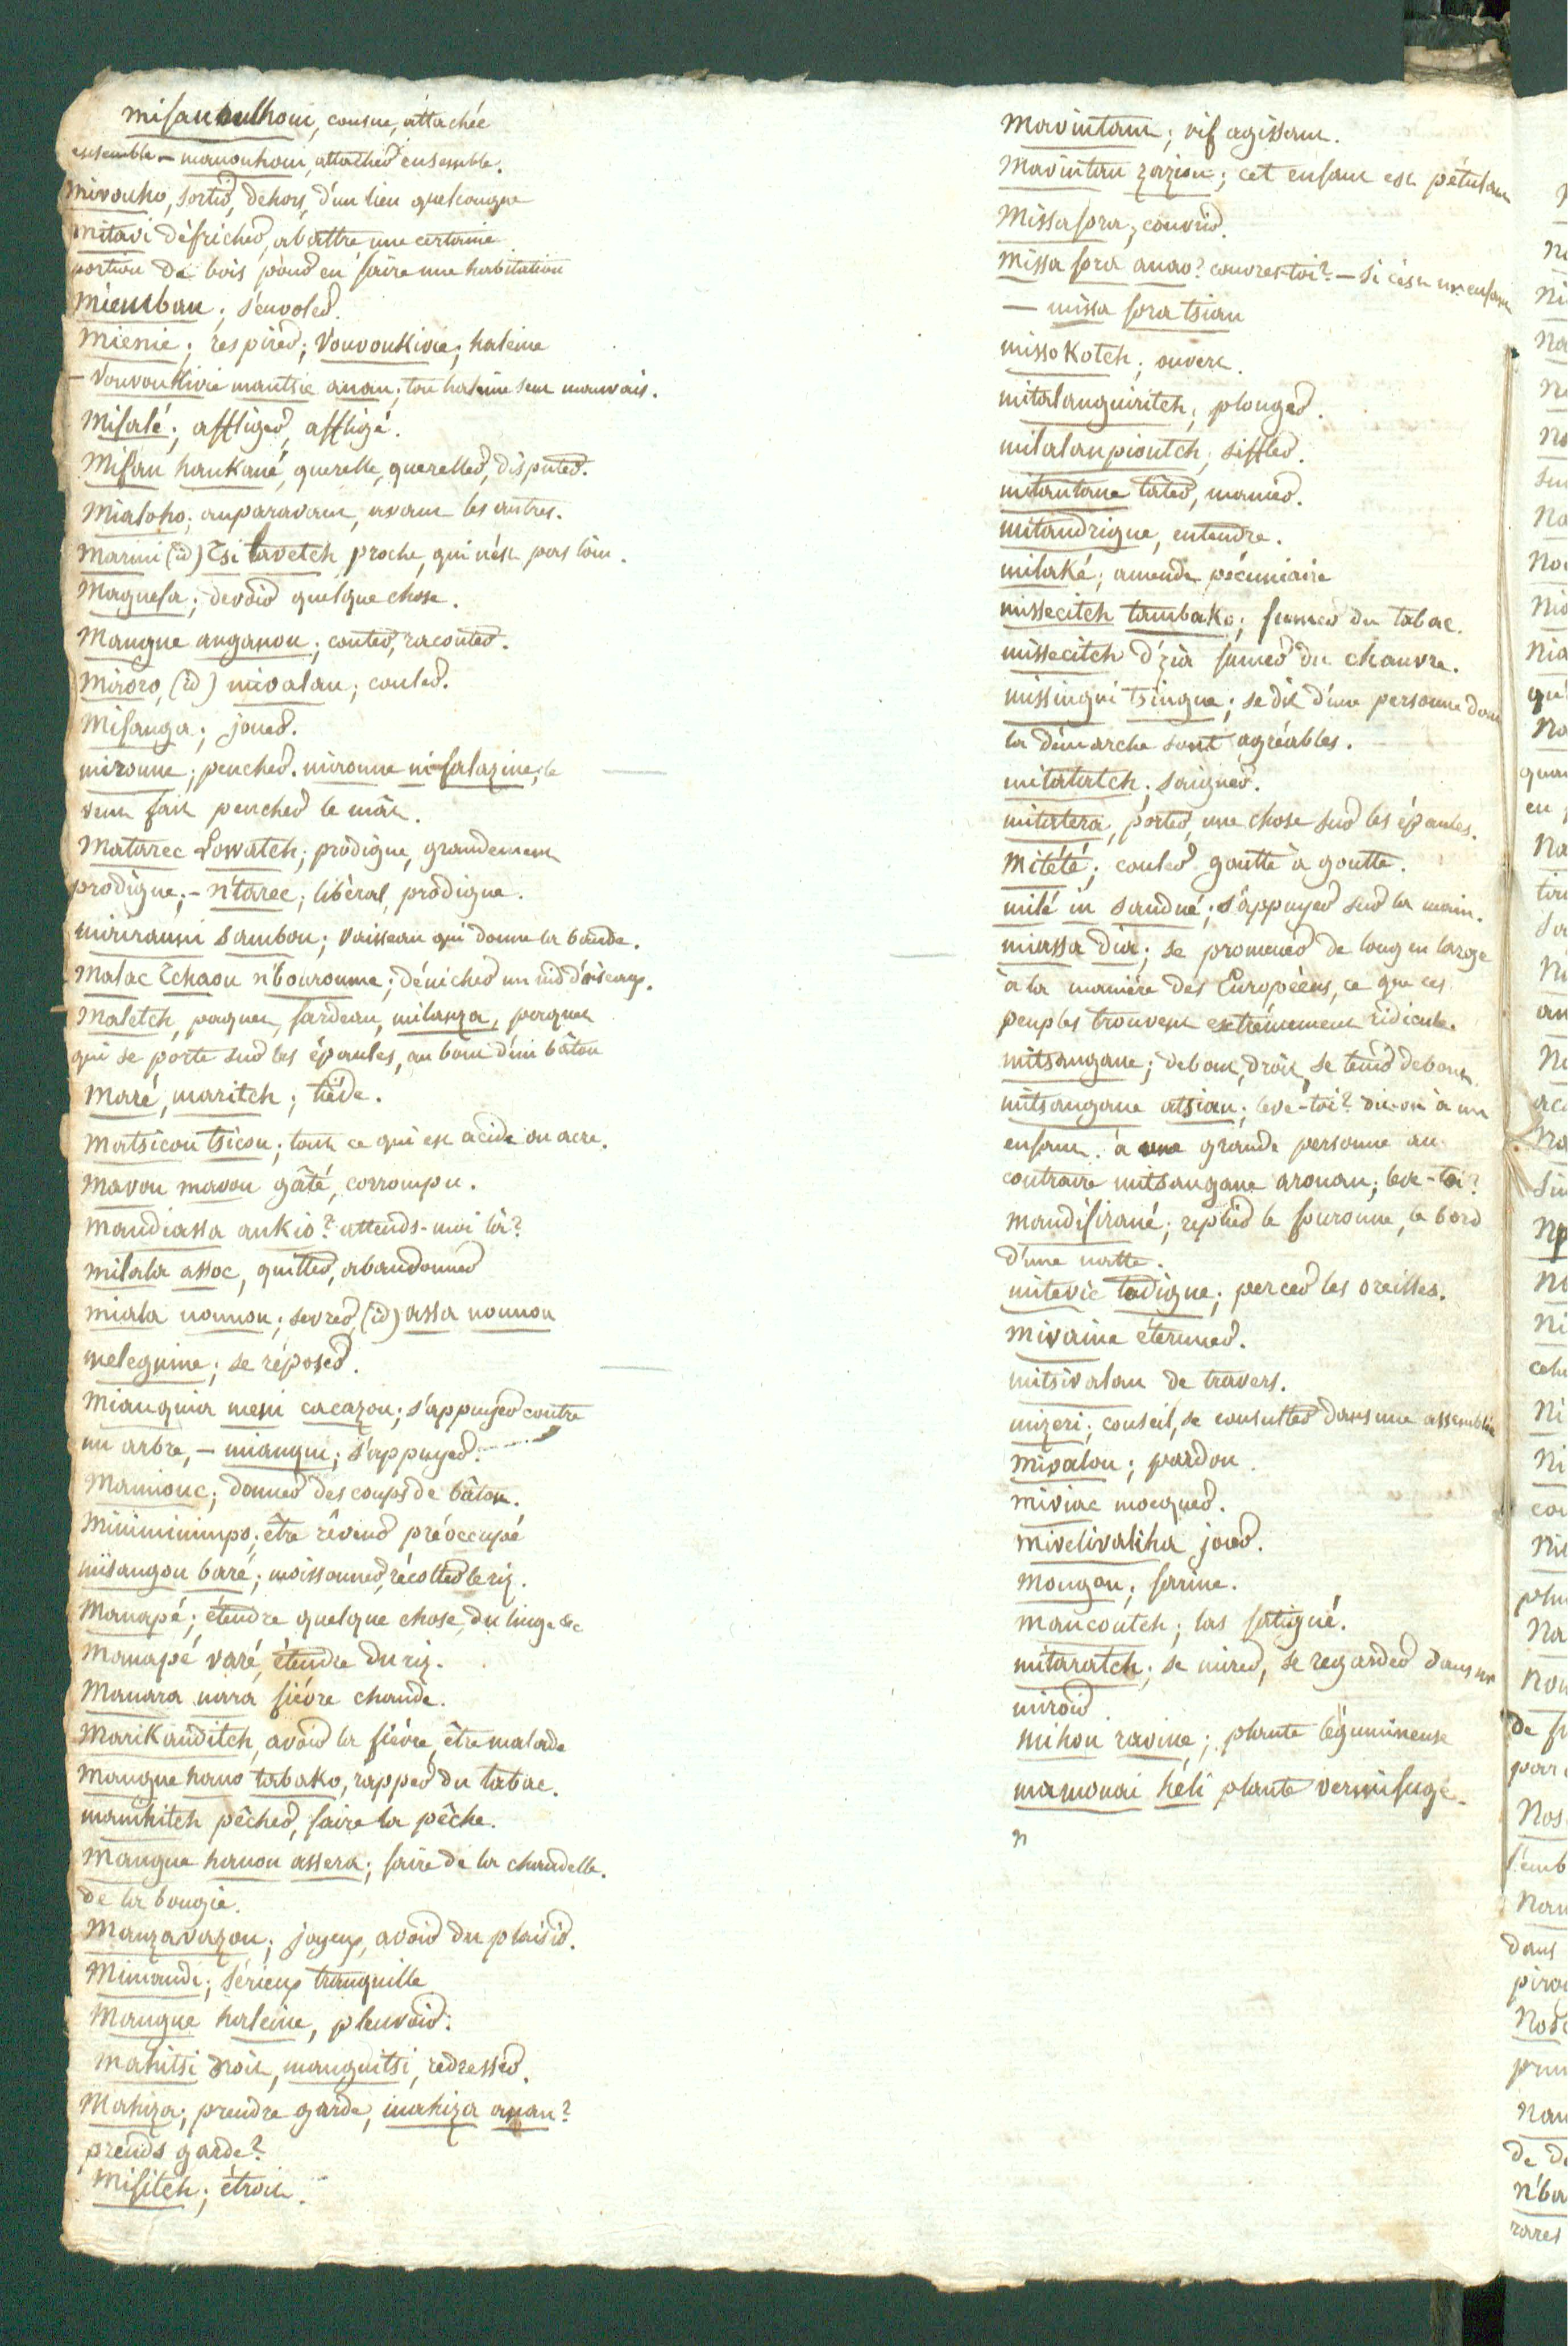 misaunulhoui, cousue, attachée
ensemble – manouhoui, attacher ensemble.
Mivouho, sortir, dehors, d'un lieu quelconque
Mitavi défricher, abattre une certaine
portion de bois pour en faire une habitation
Miemban; s'envoler.
Mienie; respirer; Vouvoukivie; haleine
– Vouvoukivie mantsie anan; ton haleine sent mauvais.
Misalé; affliger, affligé.
Misan hankané, querelle, quereller, disputer.
Mialoho; auparavant, avant les autres.
Marini (id) Tsi lavetch, proche, qui n'est pas loin.
Maguesa; devoir quelque chose.
Mangue anganou; conter, raconter.
Mioro, (id) mivalan; couler.
Misanga; jouer.
mironne; pencher. mironne ni salazine; le
vent fait pencher le mât.
Matarec Lowatch; prodigue, grandement
prodigue; – n'tarec; libéral, prodigue.
mirirauni sambou; vaisseau qui donne la bande.
Malac Tchaou n'bouroume; dénicher un nid d'oiseaux.
Maletch, paquet, fardeau, milanza, paquet
qui se porte sur les épaules, au bout d'un bâton
Maré, maritch; tiéde.
Matsicou tsicou; tout ce qui est acide ou acre.
Mavou mavou gâté, corrompu.
Mandiassa ankio? attends-moi là?
milala assoc, quitter, abandonner
miala nounou; sevrer, (id) assa nounou
meleguine; se réposer.
Mianquia meni cacazou; s'appuyer contre
un arbre, – mianqui; s'appuyer.
Mamiouc; donner des coups de bâton.
Miniminimpo; être rêveur préoccupé
misangou baré; moissonner, récolter le riz.
Manapé; étendre quelque chose, du linge &c
Manapé varé, étendre du riz.
Manara nara fiévre chaude.
Marikanditch, avoir la fiévre, être malade
Mangue hano tabako, rapper du tabac.
mamhitch pêcher, faire la pêche.
Mangue hanou assera; faire de la chandelle.
de la bougie.
Manzavazou; joyeux, avoir du plaisir.
Mimandi; sérieux tranquille
Mangue haleine, pleuvoir.
Mahitsi droit, manguitsi, redresser.
Mahiza; prendre garde, mahiza anan?
prends garde?
Misitch; étroit.
Mavintam; vif agissant.
Mavintan zazion; cet enfant est pétulant
Missasora; couvrir.
Missa sora anao? couvres-toi? – si c'est un enfant
– missa sora tsian
missokotch; ouvert.
mitalanguiritch; plonger.
milalanpioutch; siffler.
mitantane tâter, manier.
mitandrigue, entendre.
milaké; amende pécuniaire
missecitch tambako; fumer du tabac.
missecitch d'zia fumer du chanvre.
missingui tsingue; se dit d'une personne dont
la démarche sont agréables.
mitatatch; saigner.
mitatera, porter une chose sur les épaules.
Mitété; couler goutte à goutte.
milé in sandué; s'appuyer sur la main.
miassa dia; se promener de long en large
à la manière des Européens, ce que ces
peuples trouvent extrêmement ridicule.
mitsangane; debout, droit, se tenir debout.
mitsangane atsian; lève-toi? dit-on à un
enfant. à une grande personne au
contraire mitsangane aronan; leve-toi?
mandisirané; replier le souronne, le bord
d'une natte.
mitevic tadigne; percer les oreilles.
Mivaine éternuer.
mitsivalan de travers.
mizeri; conseil, se consulter dans une assemblée
mivalou; pardon.
miviac mocquer.
mivelivaliha jouer.
Mongou; farine.
Mancoutch; las fatigué.
mitaratch; se mirer, se regarder dans un
miroir.
mihou ravine; plante légumineuse
mamonai héli plante vermifuge.
n